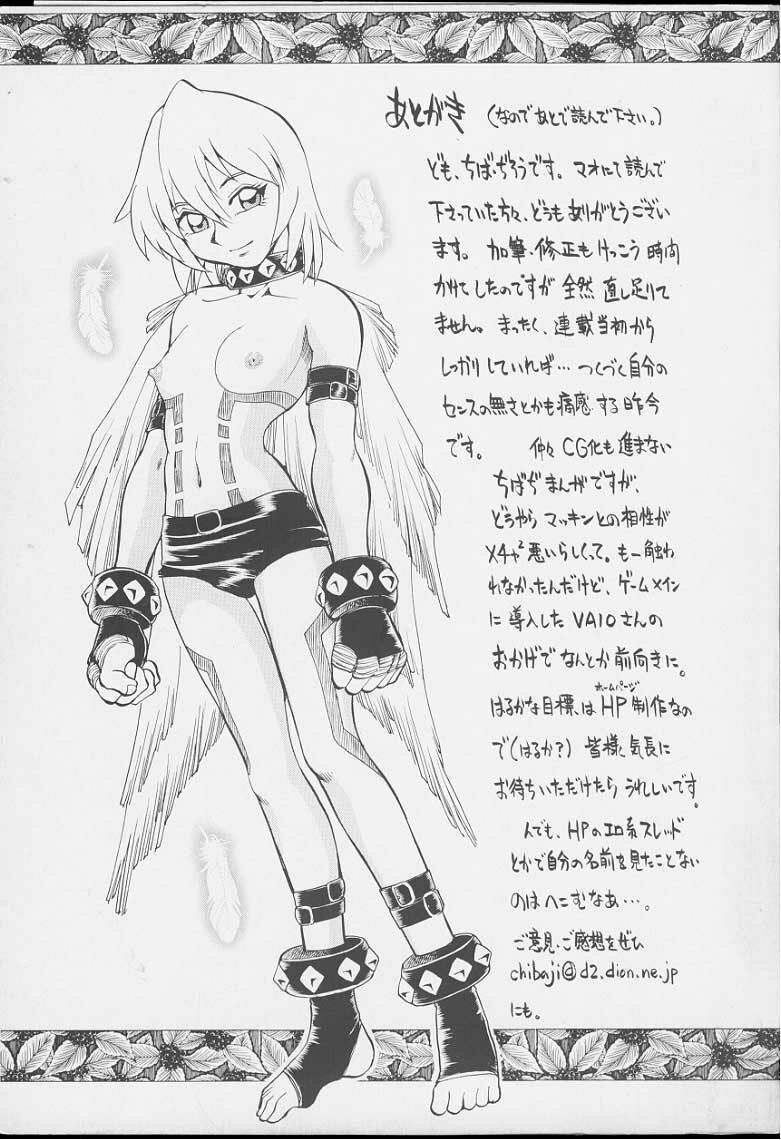 あとがき (なのであとで読んで下さい。)
ども、ちば・ぢろうです。マオにて読んで
下さっていた方々、どうもありがとうござい
ます。加筆・修正もけっこう時間
かけてしたのですが全然直し足りて
ません。まったく、連載当初から
しっかりしていれば…つくづく自分の
センスの無さとかも痛感する昨今
です。 仲々CG化も進まない
ちばぢまんがですが、
どうやらマッキンとの相性が
メチャ²悪いらしくって。もー触わ
れなかったんだけど、ゲームメイン
に導入したVAIOさんの
おかげでなんとか前向きに。
ホームページ
はるかな目標はHP制作なの
で(はるか?)皆様気長に
お待ちいただけたらうれしいです。
んでも、HPのエロ系スレッド
とかで自分の名前を見たことない
のはへこむなあ…。
ご意見・ご感想をぜひ
chibaji@d2.dion.ne.jp
にも。